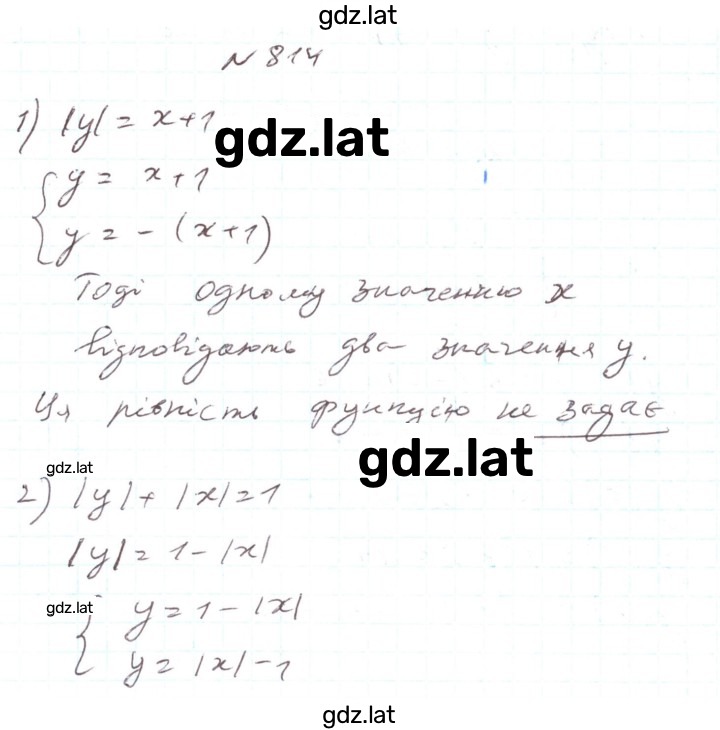 gdz.lat
N 814
1) |y| = x+1
gdz.lat
y = x+1
y = - (x+1)
Тоді одному значенню x
відповідають два значення y.
Ця рівність функцію не задає
gdz.lat
gdz.lat
2) |y| + |x| = 1
|y| = 1 - |x|
gdz.lat
y = 1 - |x|
y = |x| - 1
gdz.lat